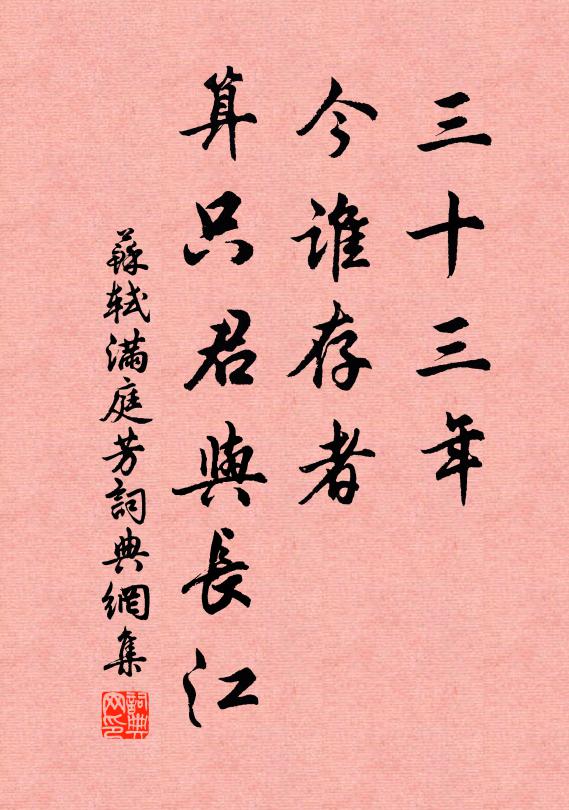 三十三年
今誰存者
算只君與長江
蘇軾滿庭芳詞典網集
詞典网印